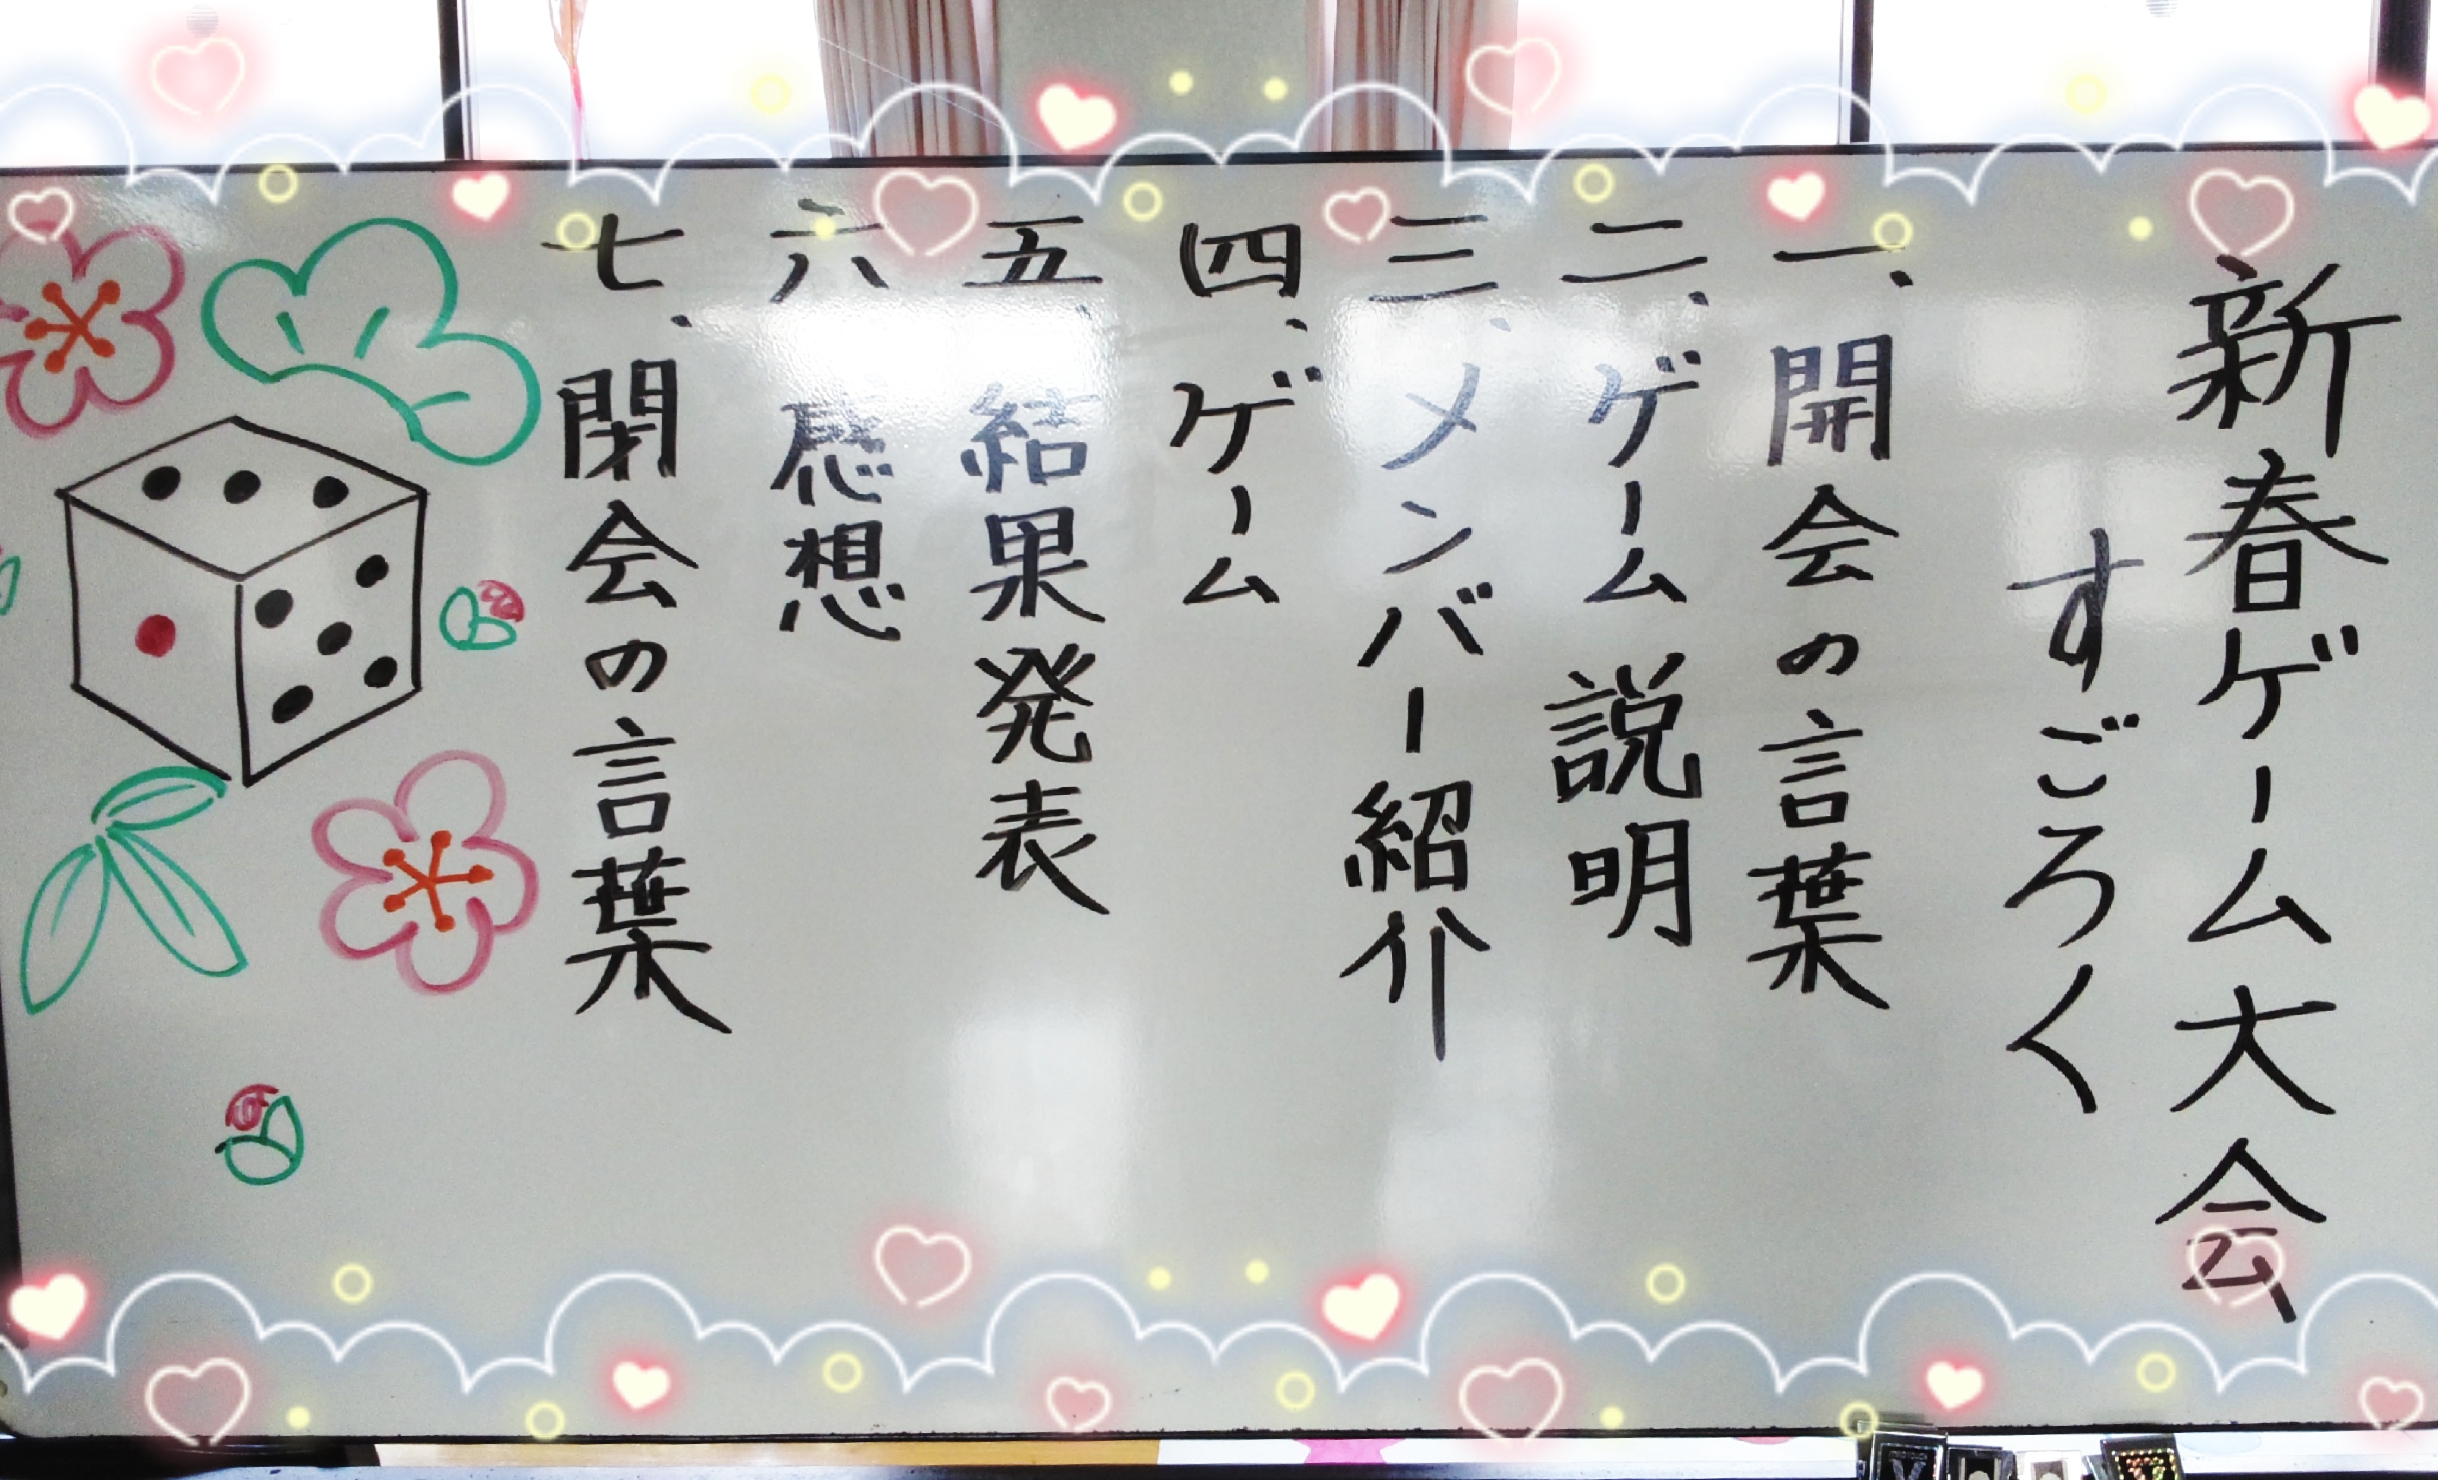 新春ゲーム大会
すごろく
一、開会の言葉
二、ゲーム説明
三、メンバー紹介
四、ゲーム
五、結果発表
六、感想
七、閉会の言葉